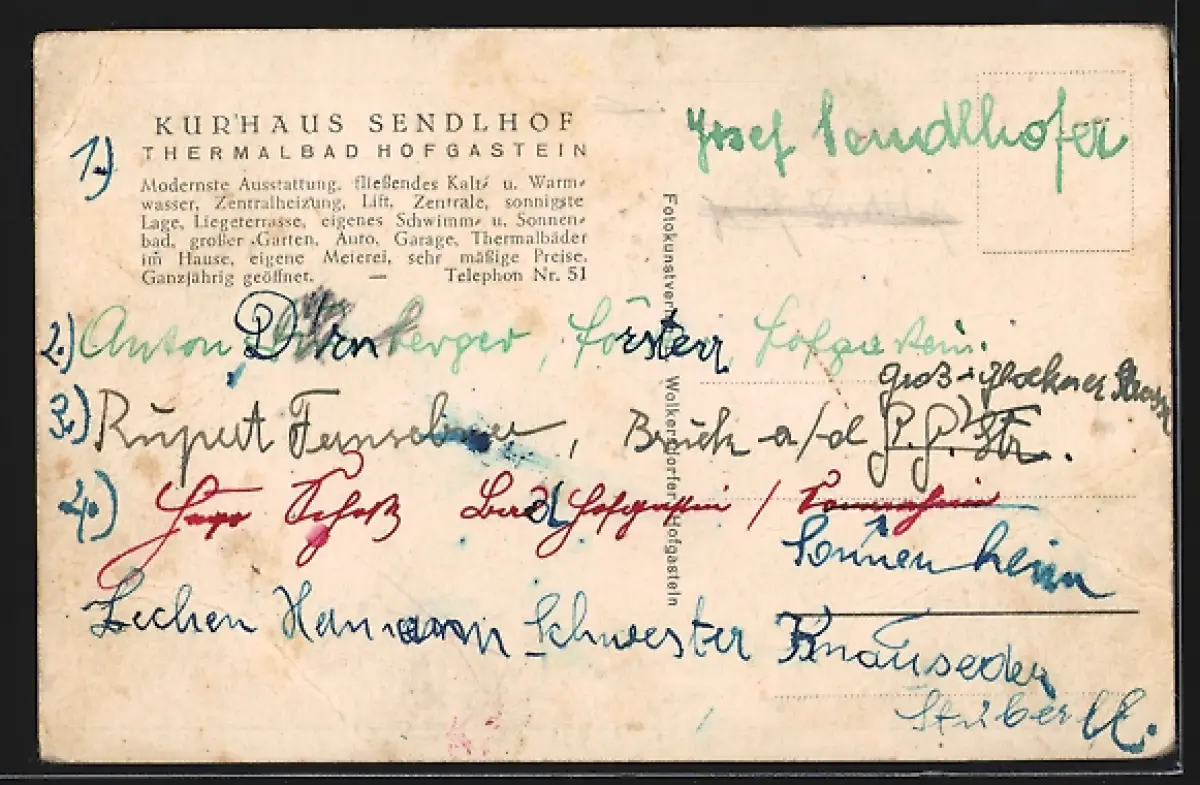 KURHAUS SENDLHOF
THERMALBAD HOFGASTEIN
Modernste Ausstattung, fließendes Kalt- u. Warm-
wasser, Zentralheizung, Lift, Zentrale, sonnigste
Lage, Liegeterrasse, eigenes Schwimm- u. Sonnen-
bad, großer Garten, Auto, Garage, Thermalbäder
im Hause, eigene Meierei, sehr mäßige Preise.
Ganzjährig geöffnet. — Telephon Nr. 51
1.)
Josef Sendlhofer
Wolkersdorfer, Hofgastein
2.) Anton Dirnberger, Förster, Hofgastein.
Groß-Glockner Strasse
3.) Rupert, Bruck a/d G. G. Str.
4.) Bad Hofgastein /
Sonnenheim
Zechen Hamann Schwester Knauseder
Stüberl.